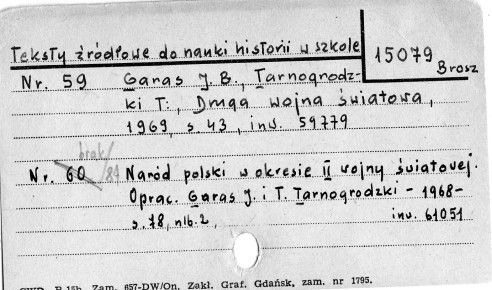 Teksty źródłowe do nauki historii w szkole
15079
Brosz
Nr. 59 Garas J. B., Tarnogrodz-
ki T., Druga wojna światowa,
1969, s. 43, inw. 59779
brak/84
Nr. 60 Naród polski w okresie II wojny światowej.
Oprac. Garas J. i T. Tarnogrodzki - 1968 -
s. 78, nlb. 2, inw. 61051
Zam. 657-DW/On. Zakł. Graf. Gdańsk, zam. nr 1795.